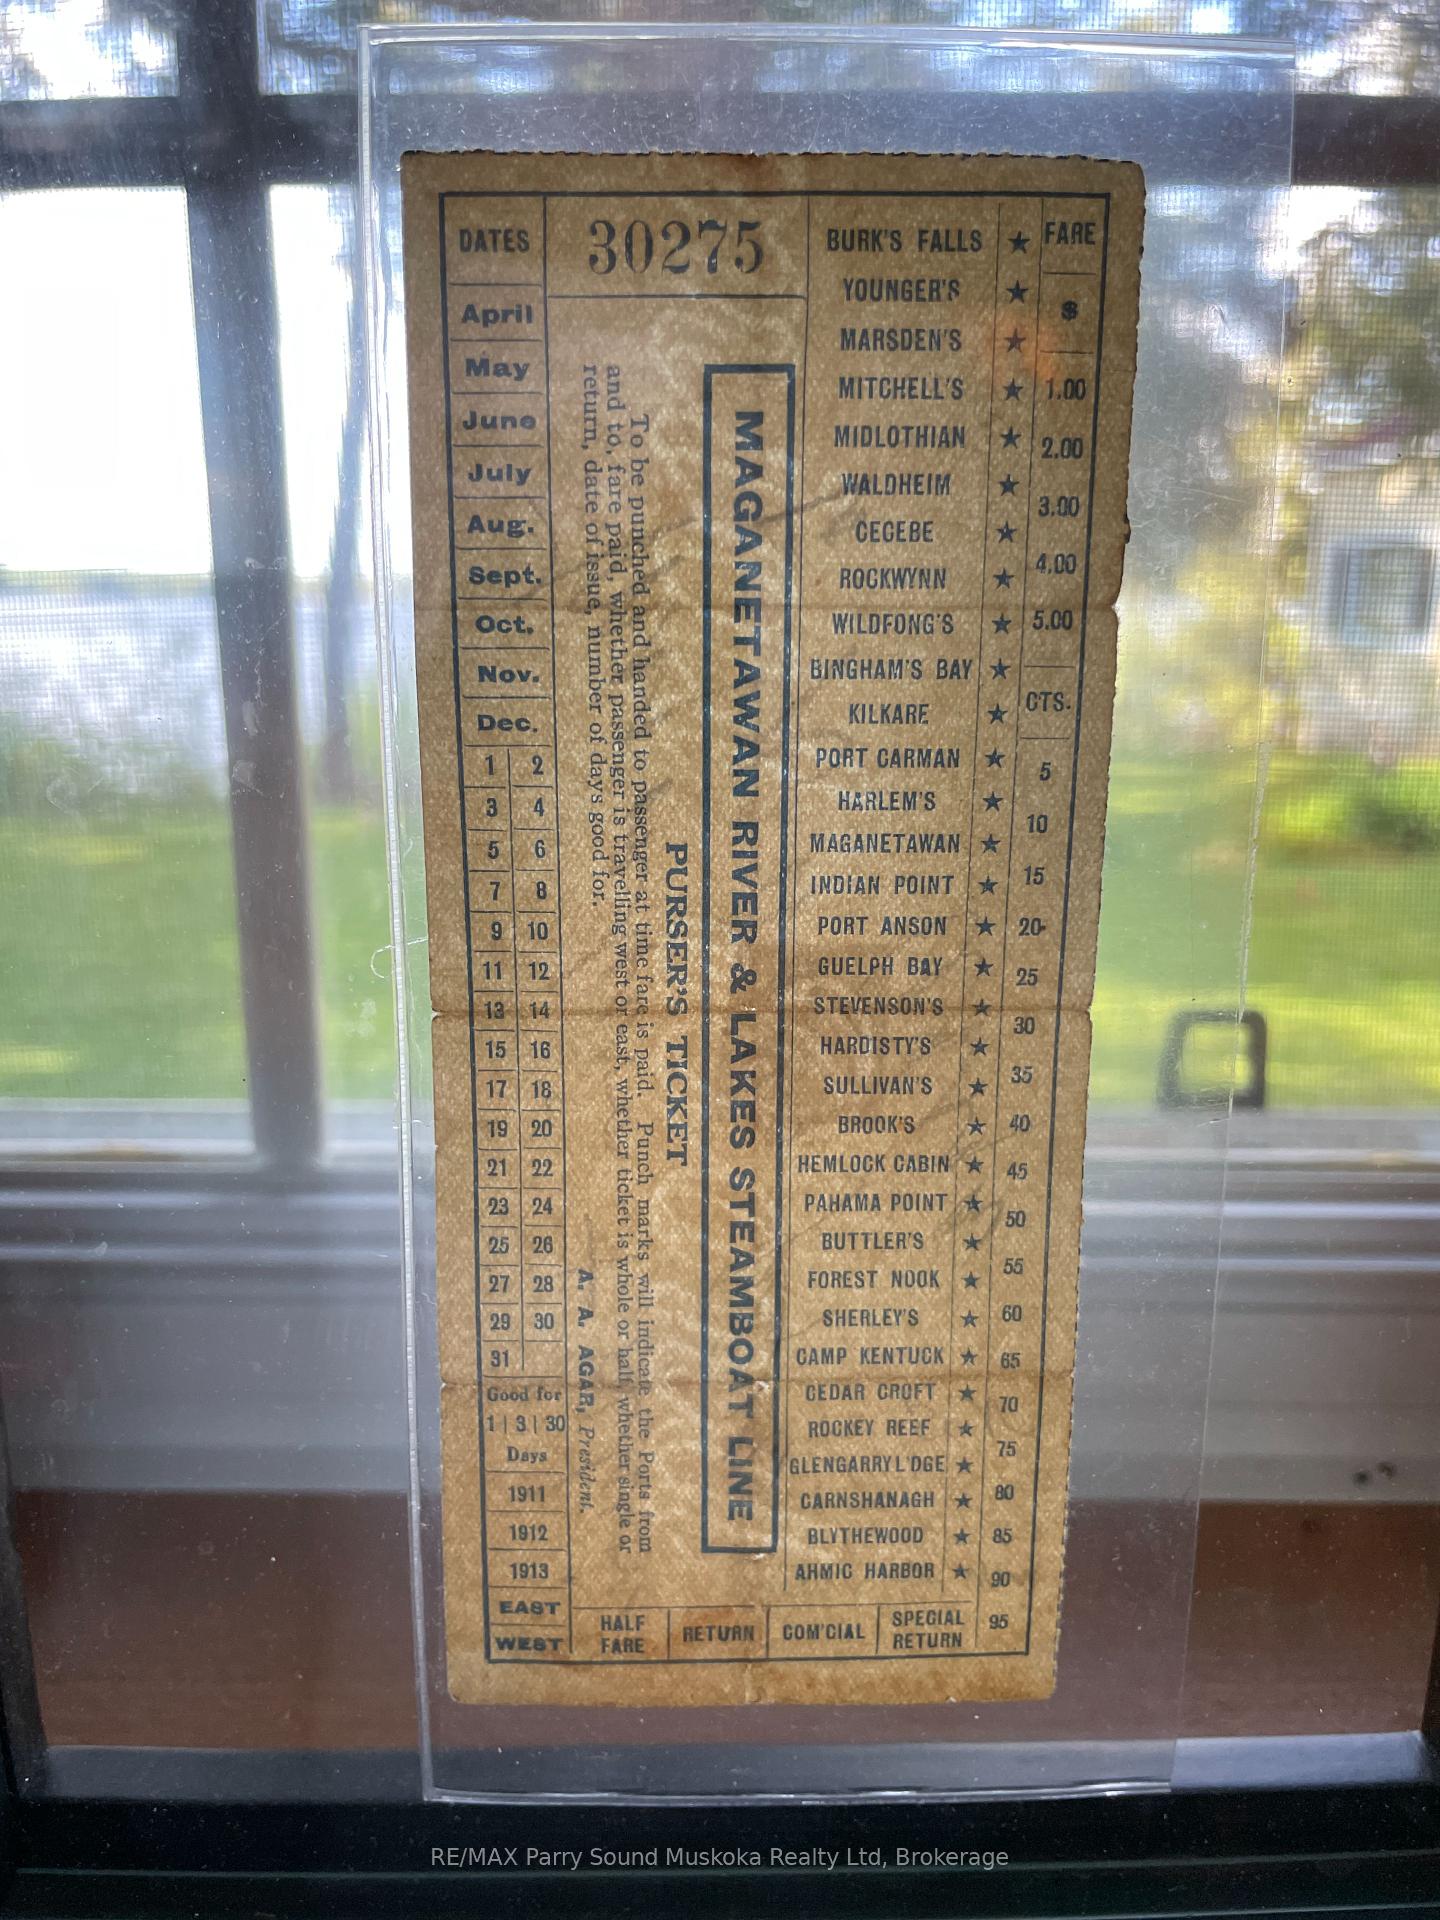 DATES
April
May
June
July
Aug.
Sept.
Oct.
Nov.
Dec.
1 2
3 4
5 6
7 8
9 10
11 12
13 14
15 16
17 18
19 20
21 22
23 24
25 26
27 28
29 30
31
Good for
1 | 3 | 30
Days
1911
1912
1913
EAST
WEST
30275
MAGANETAWAN RIVER & LAKES STEAMBOAT LINE
PURSER'S TICKET
To be punched and handed to passenger at time fare is paid. Punch marks will indicate the Ports from
and to, fare paid, whether passenger is travelling west or east, whether ticket is whole or half, whether single or
return, date of issue, number of days good for.
A. A. AGAR, President.
BURK'S FALLS ★
YOUNGER'S ★
MARSDEN'S ★
MITCHELL'S ★
MIDLOTHIAN ★
WALDHEIM ★
CECEBE ★
ROCKWYNN ★
WILDFONG'S ★
BINGHAM'S BAY ★
KILKARE ★
PORT CARMAN ★
HARLEM'S ★
MAGANETAWAN ★
INDIAN POINT ★
PORT ANSON ★
GUELPH BAY ★
STEVENSON'S ★
HARDISTY'S ★
SULLIVAN'S ★
BROOK'S ★
HEMLOCK CABIN ★
PAHAMA POINT ★
BUTTLER'S ★
FOREST NOOK ★
SHERLEY'S ★
CAMP KENTUCK ★
CEDAR CROFT ★
ROCKEY REEF ★
GLENGARRY L'DGE ★
CARNSHANAGH ★
BLYTHEWOOD ★
AHMIC HARBOR ★
FARE
$
1.00
2.00
3.00
4.00
5.00
CTS.
5
10
15
20
25
30
35
40
45
50
55
60
65
70
75
80
85
90
95
HALF
FARE
RETURN
COM'CIAL
SPECIAL
RETURN
RE/MAX Parry Sound Muskoka Realty Ltd, Brokerage